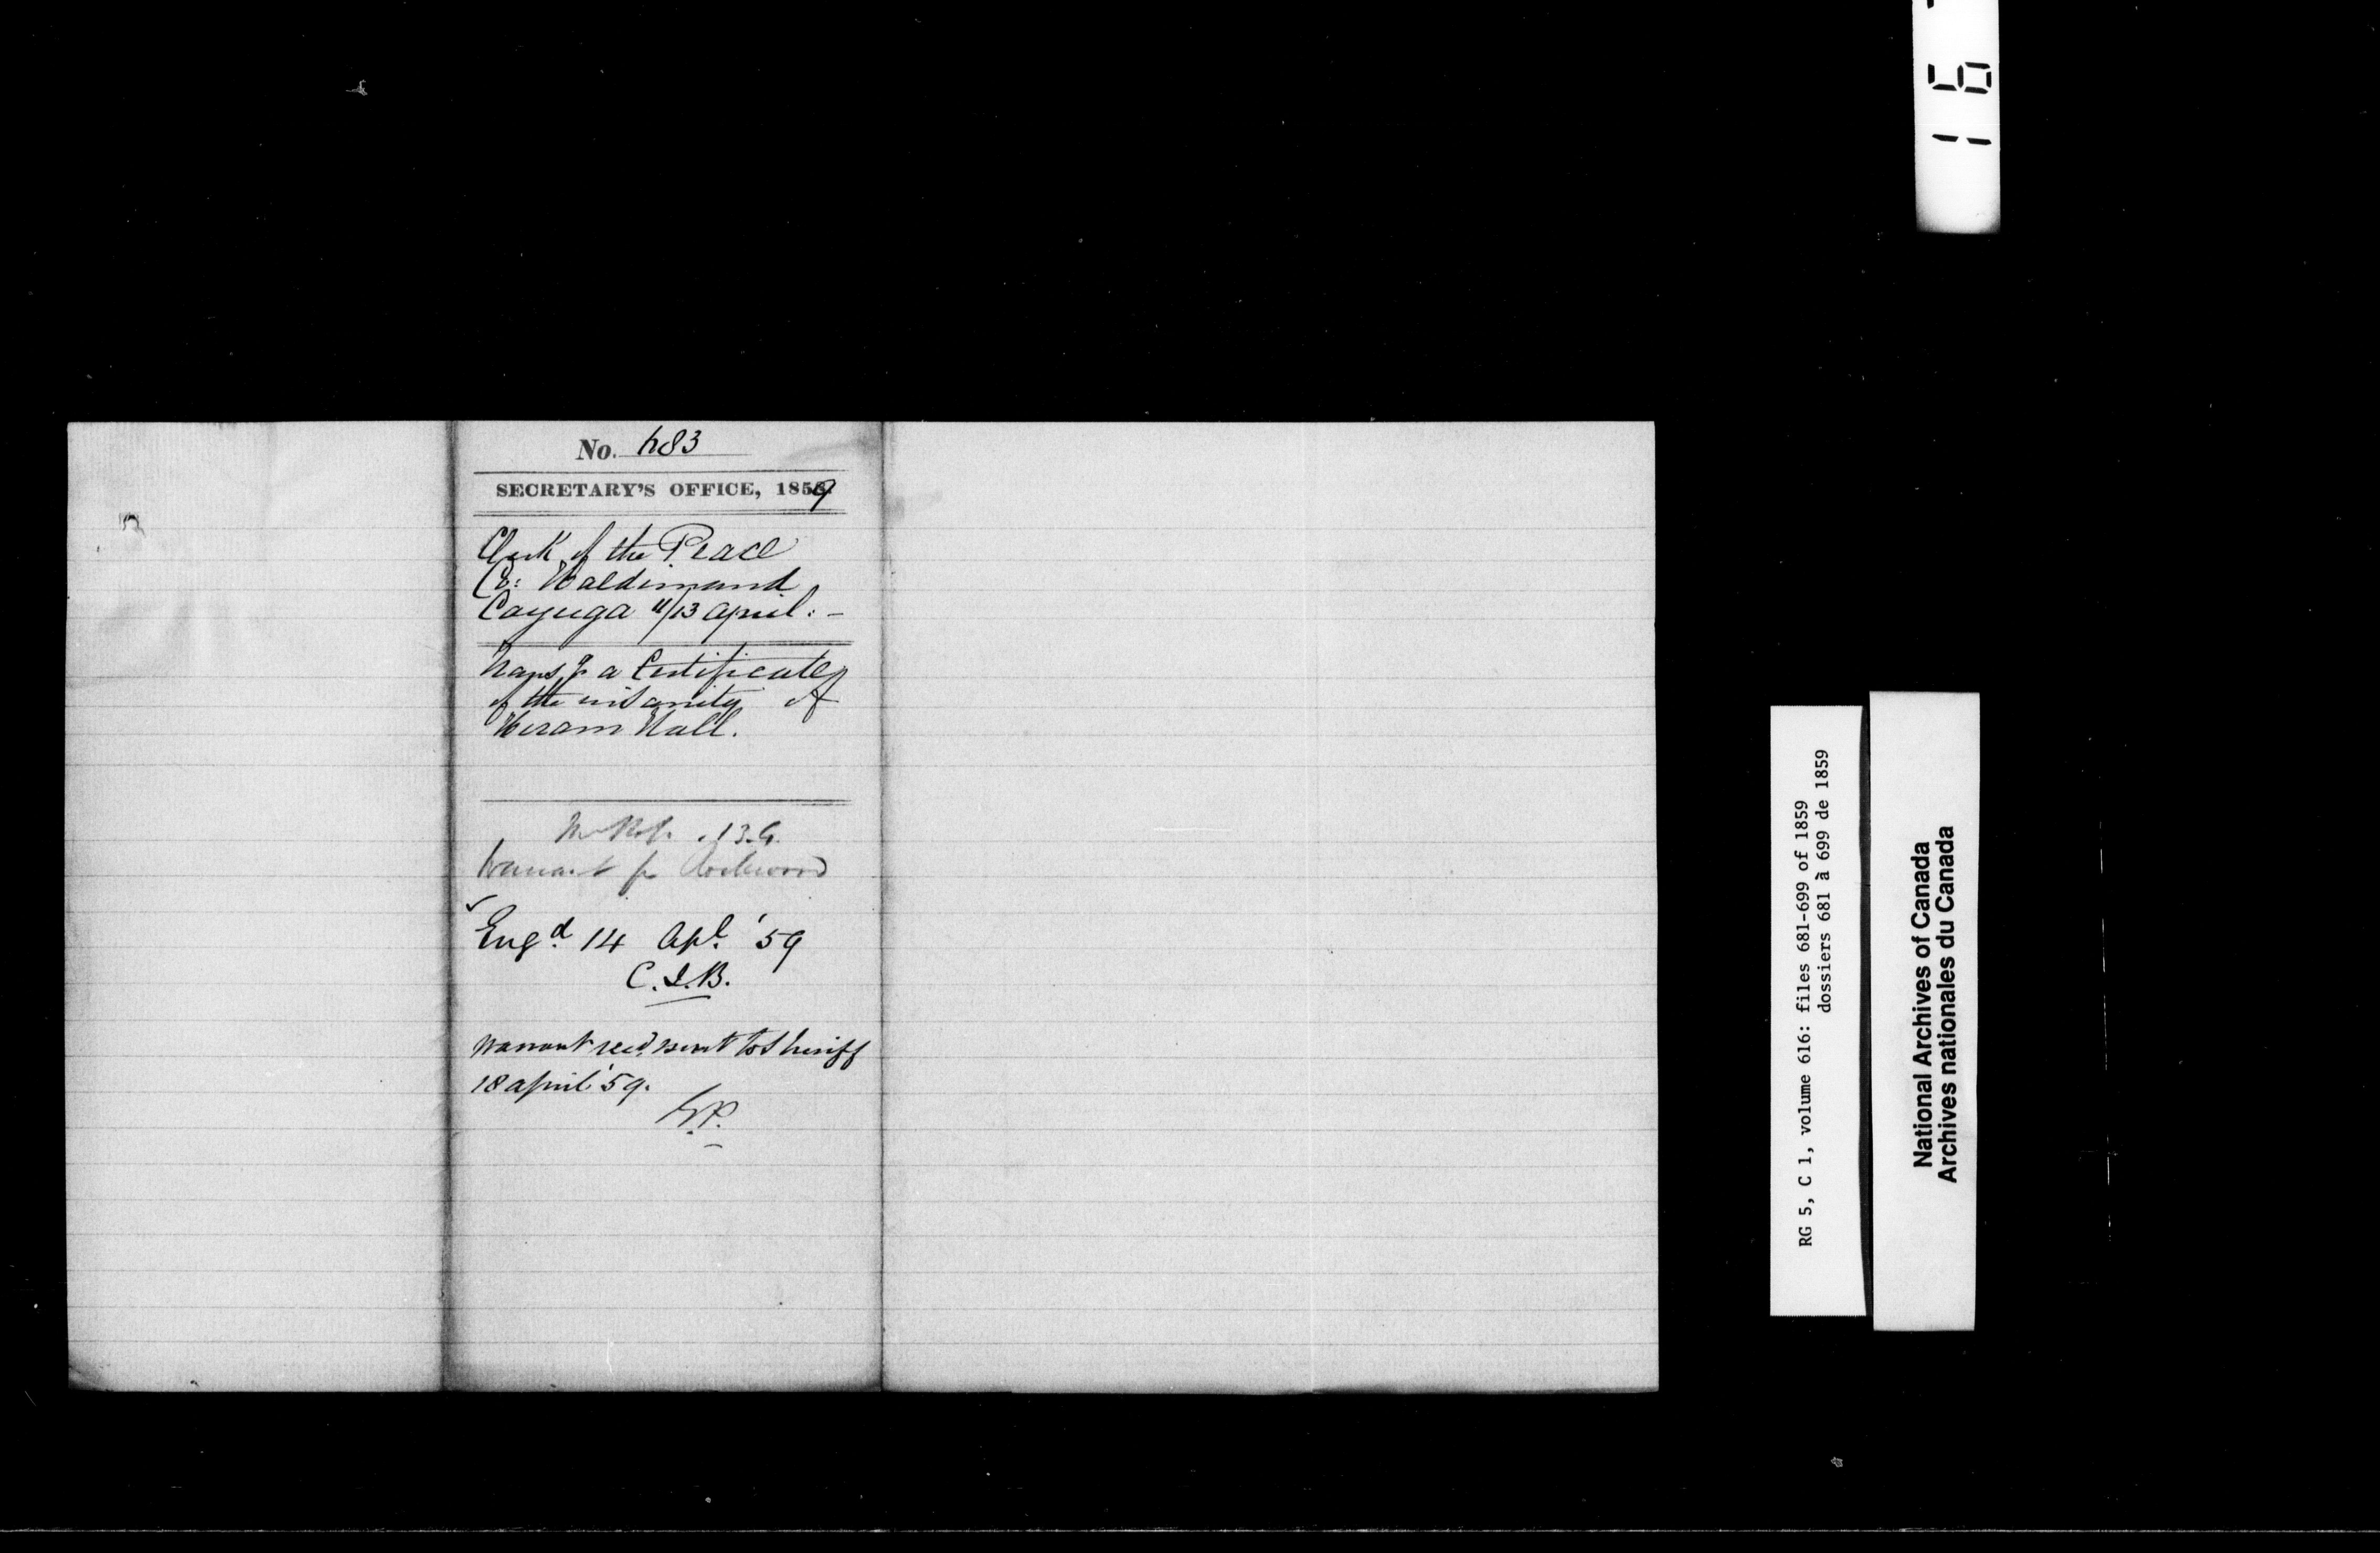 No. 683
SECRETARY'S OFFICE, 1859
Clerk of the Peace
Co: Haldimand
Cayuga 11/13 April: -
Trans.g a Certificate
of the insanity of
Hiram Hall.
13.4.
Warrant for Rockwood
Engd. 14 Apl. '59
C.I.B.
Warrant recd. sent to Sheriff
18 April '59.
RG 5, C 1, volume 616: files 681-699 of 1859
dossiers 681 à 699 de 1859
National Archives of Canada
Archives nationales du Canada
16